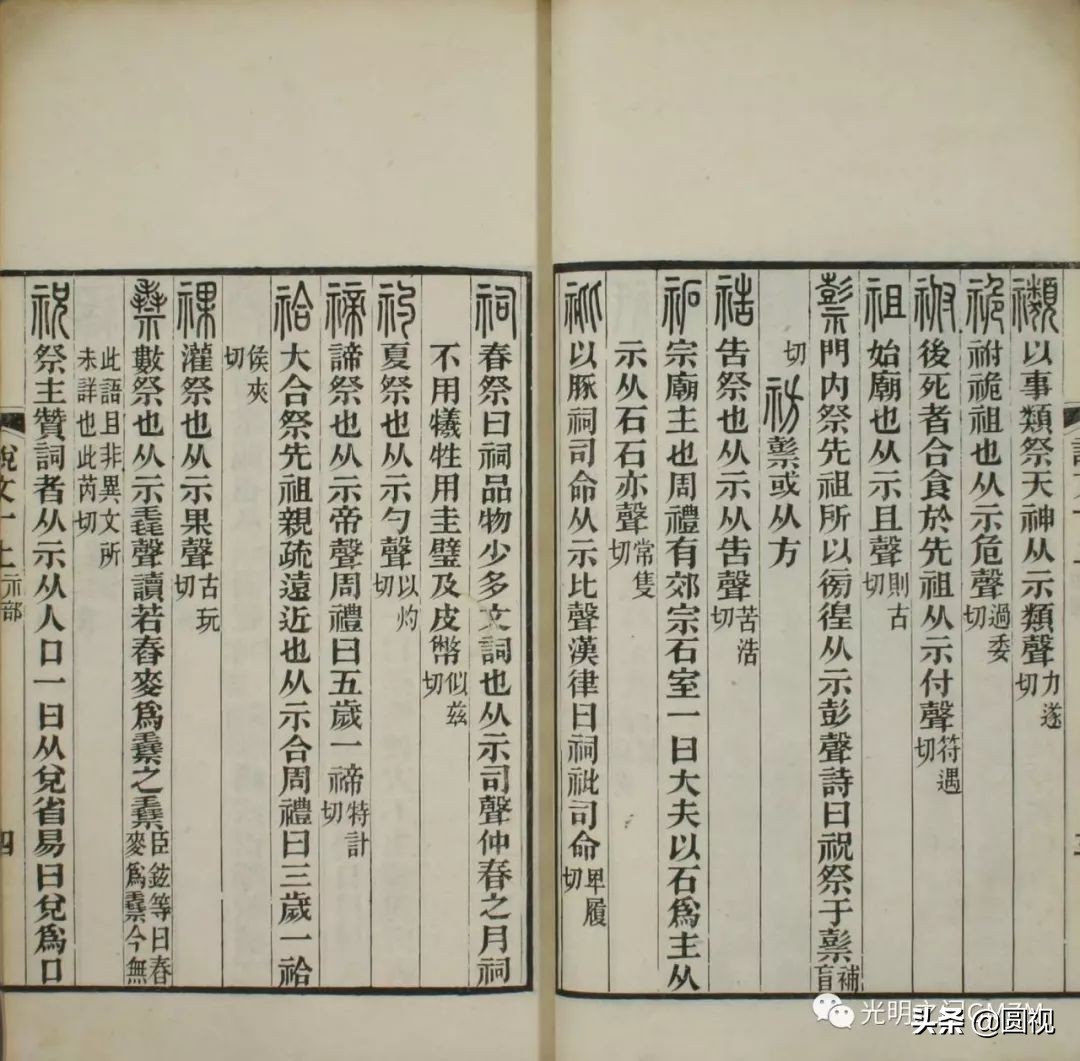 禷以事類祭天神从示類聲力遂切
祪祔祪祖也从示危聲過委切
祔後死者合食於先祖从示付聲符遇切
祖始廟也从示且聲則古切
門內祭先祖所以徬徨从示彭聲詩曰祝祭于補盲
切祊或从方
祰告祭也从示从告聲苦浩切
祏宗廟主也周禮有郊宗石室一曰大夫以石爲主从
示从石石亦聲常隻切
䃾以豚祠司命从示比聲漢律曰祠祉司命卑履切
祠春祭曰祠品物少多文詞也从示司聲仲春之月祠
不用犧牲用圭璧及皮幣似兹切
礿夏祭也从示勺聲以灼切
禘諦祭也从示帝聲周禮曰五歲一禘特計切
祫大合祭先祖親疏遠近也从示合周禮曰三歲一祫
侯夾切
祼灌祭也从示果聲古玩切
數祭也从示毳聲讀若舂麥爲之臣鉉等曰舂麥爲今無
此語且非異文所未詳也此芮切
祝祭主贊詞者从示从人口一曰从兌省易曰兌爲口
說文一上示部
四
光明之门GMZM
头条 @圆视